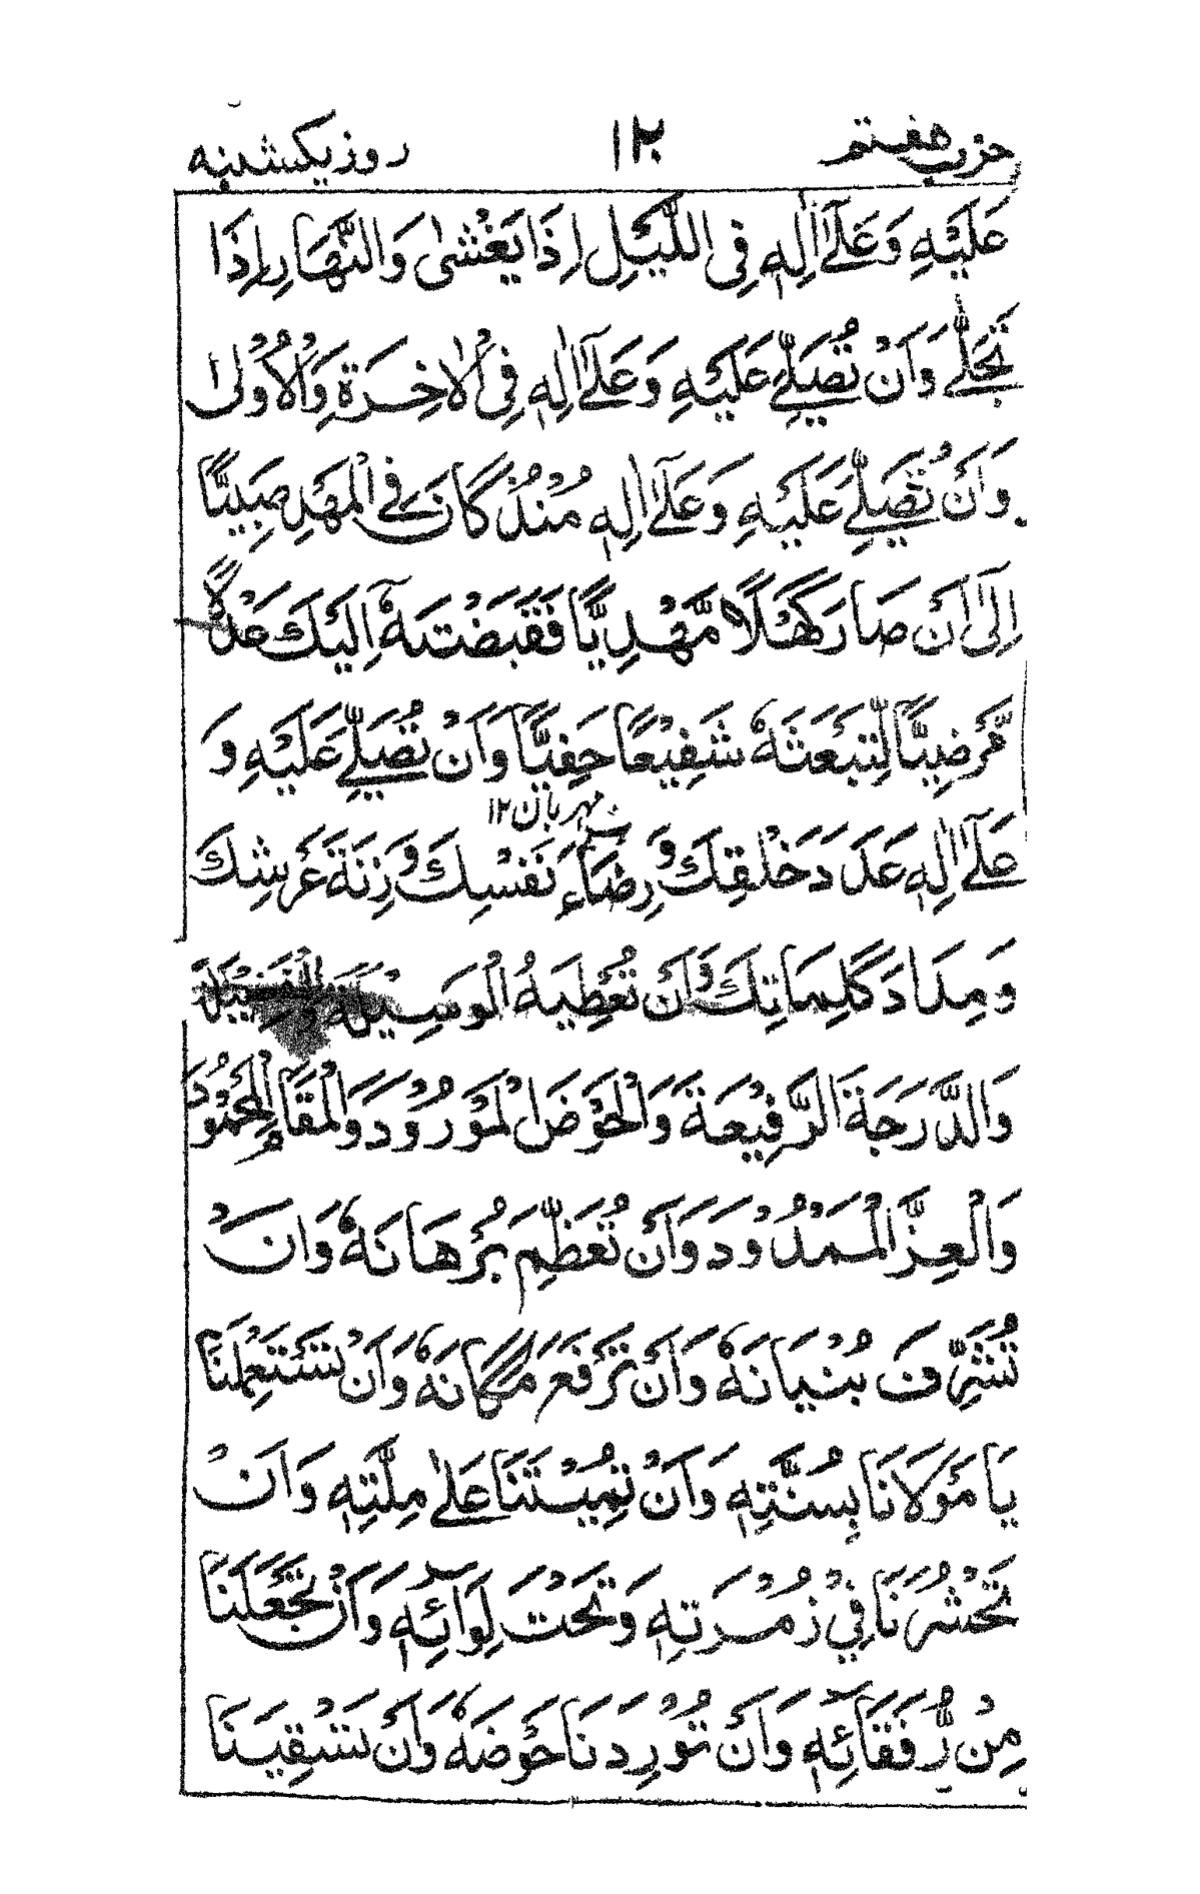 حزب هفتم ۱۲ روز یکشنبه
عَلَيْهِ وَعَلٰۤى اٰلِهٖ فِي اللَّيْلِ اِذَا يَغْشٰى وَالنَّهَارِ اِذَا
تَجَلّٰى وَاَنْ تُصَلِّيَ عَلَيْهِ وَعَلٰۤى اٰلِهٖ فِي الْاٰخِرَةِ وَالْاُوْلٰى
وَاَنْ تُصَلِّيَ عَلَيْهِ وَعَلٰۤى اٰلِهٖ مُنْذُ كَانَ فِي الْمَهْدِ صَبِيًّا
اِلٰۤى اَنْ صَارَ كَهْلًا مَّهْدِيًّا فَقَبَضْتَهٗۤ اِلَيْكَ عَدْلًا
مَّرْضِيًّا لِّتَبْعَثَهٗ شَفِيْعًا حَفِيًّا وَاَنْ تُصَلِّيَ عَلَيْهِ وَ
مهربان ۱۲
عَلٰۤى اٰلِهٖ عَدَدَ خَلْقِكَ وَرِضَاءِ نَفْسِكَ وَزِنَةَ عَرْشِكَ
وَمِدَادَ كَلِمَاتِكَ وَاَنْ تُعْطِيَهُ الْوَسِيْلَةَ وَالْفَضِيْلَةَ
وَالدَّرَجَةَ الرَّفِيْعَةَ وَالْحَوْضَ الْمَوْرُوْدَ وَالْمَقَامَ الْمَحْمُوْدَ
وَالْعِزَّ الْمَمْدُوْدَ وَاَنْ تُعَظِّمَ بُرْهَانَهٗ وَاَنْ
تُشَرِّفَ بُنْيَانَهٗ وَاَنْ تَرْفَعَ مَكَانَهٗ وَاَنْ تَسْتَعْمِلَنَا
يَا مَوْلَانَا بِسُنَّتِهٖ وَاَنْ تُمِيْتَنَا عَلٰى مِلَّتِهٖ وَاَنْ
تَحْشُرَنَا فِيْ زُمْرَتِهٖ وَتَحْتَ لِوَآئِهٖ وَاَنْ تَجْعَلَنَا
مِنْ رُّفَقَآئِهٖ وَاَنْ تُوْرِدَنَا حَوْضَهٗ وَاَنْ تَسْقِيَنَا